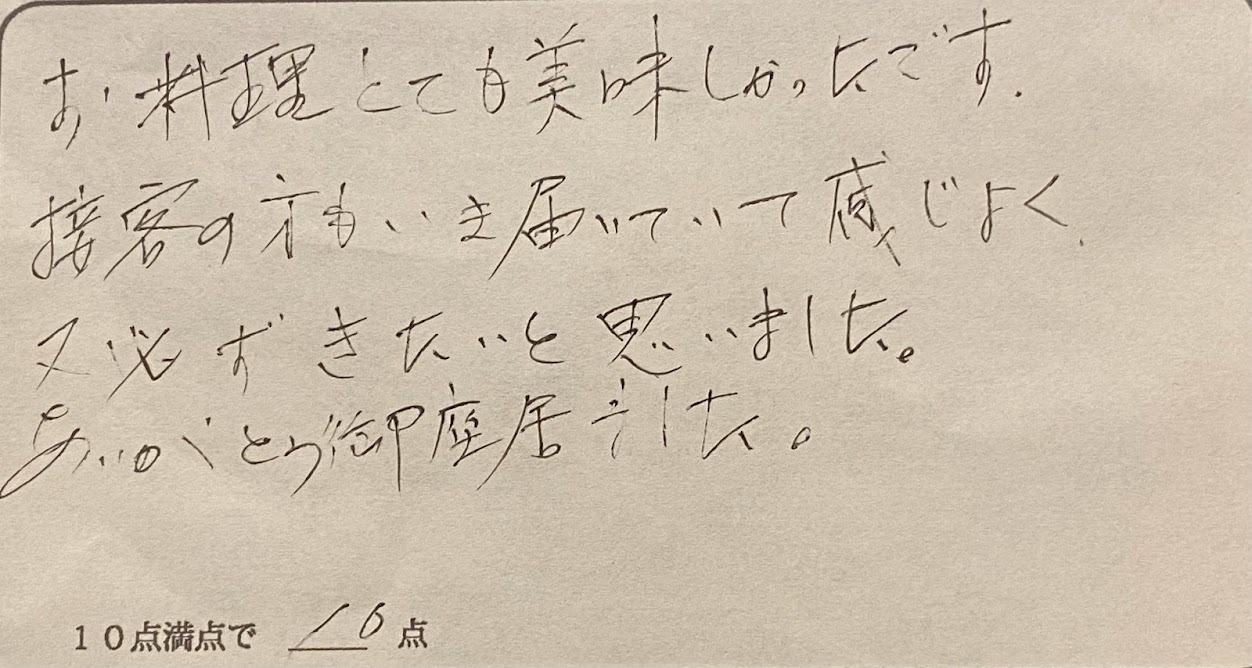 お料理とても美味しかったです.
接客の方もいき届いていて感じよく、
又必ずきたいと思いました。
ありがとう御座居ました。
10点満点で 10 点